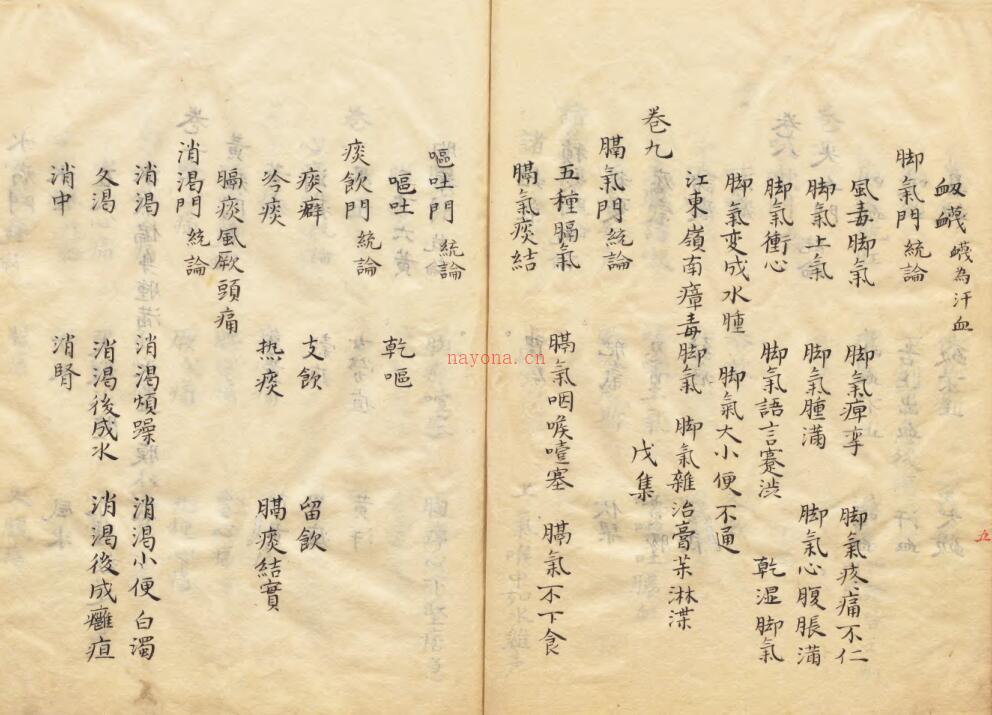 衂衊 衊為汗血
脚氣門 統論
風毒脚氣 脚氣痺挛 脚氣疼痛不仁
脚氣上氣 脚氣腫滿 脚氣心腹脹滿
脚氣衝心 脚氣語言蹇渋 乾湿脚氣
脚氣变成水腫 脚氣大小便不通
江東嶺南瘴毒脚氣 脚氣雜治膏茱淋渫
卷九 戊集
膈氣門 統論
五種膈氣 膈氣咽喉噎塞 膈氣不下食
膈氣痰結
嘔吐門 統論
嘔吐 乾嘔
痰飲門 統論
痰癖 支飲 留飲
冷痰 热痰 膈痰結實
膈痰風厥頭痛
消渇門 統論
消渇 消渇煩躁 消渇小便白濁
久渇 消渇後成水 消渇後成癰疽
消中 消腎
nayona.cn
五